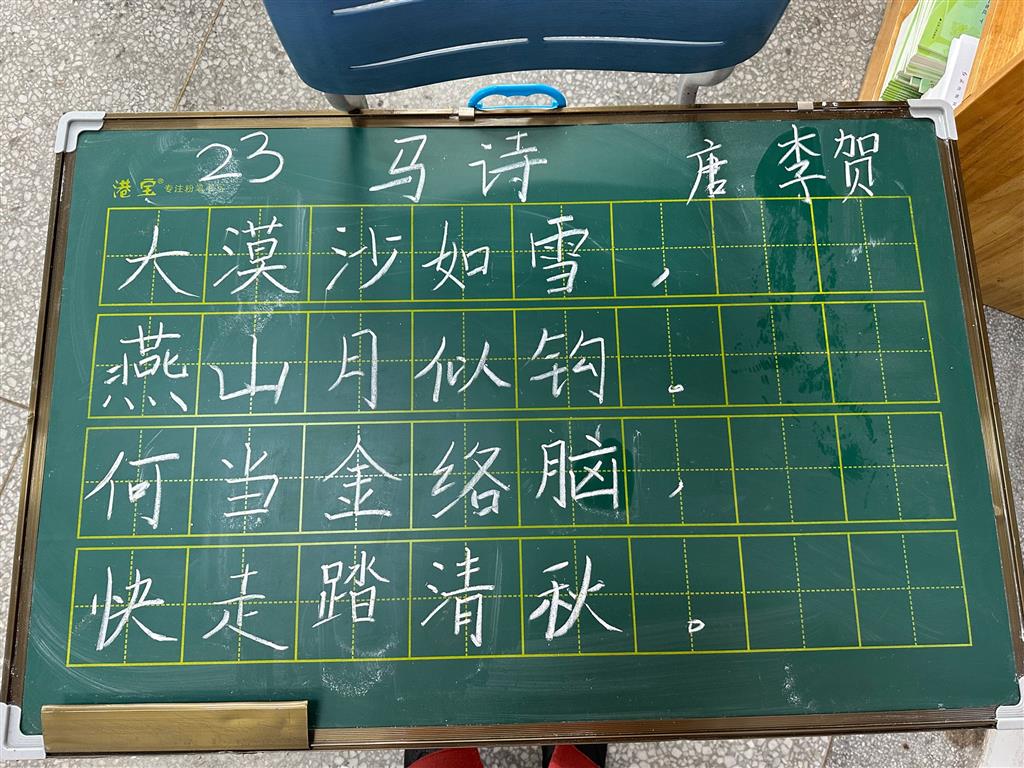 23 马诗 唐 李贺
港宝® 专注粉笔书写
大漠沙如雪，
燕山月似钩。
何当金络脑，
快走踏清秋。